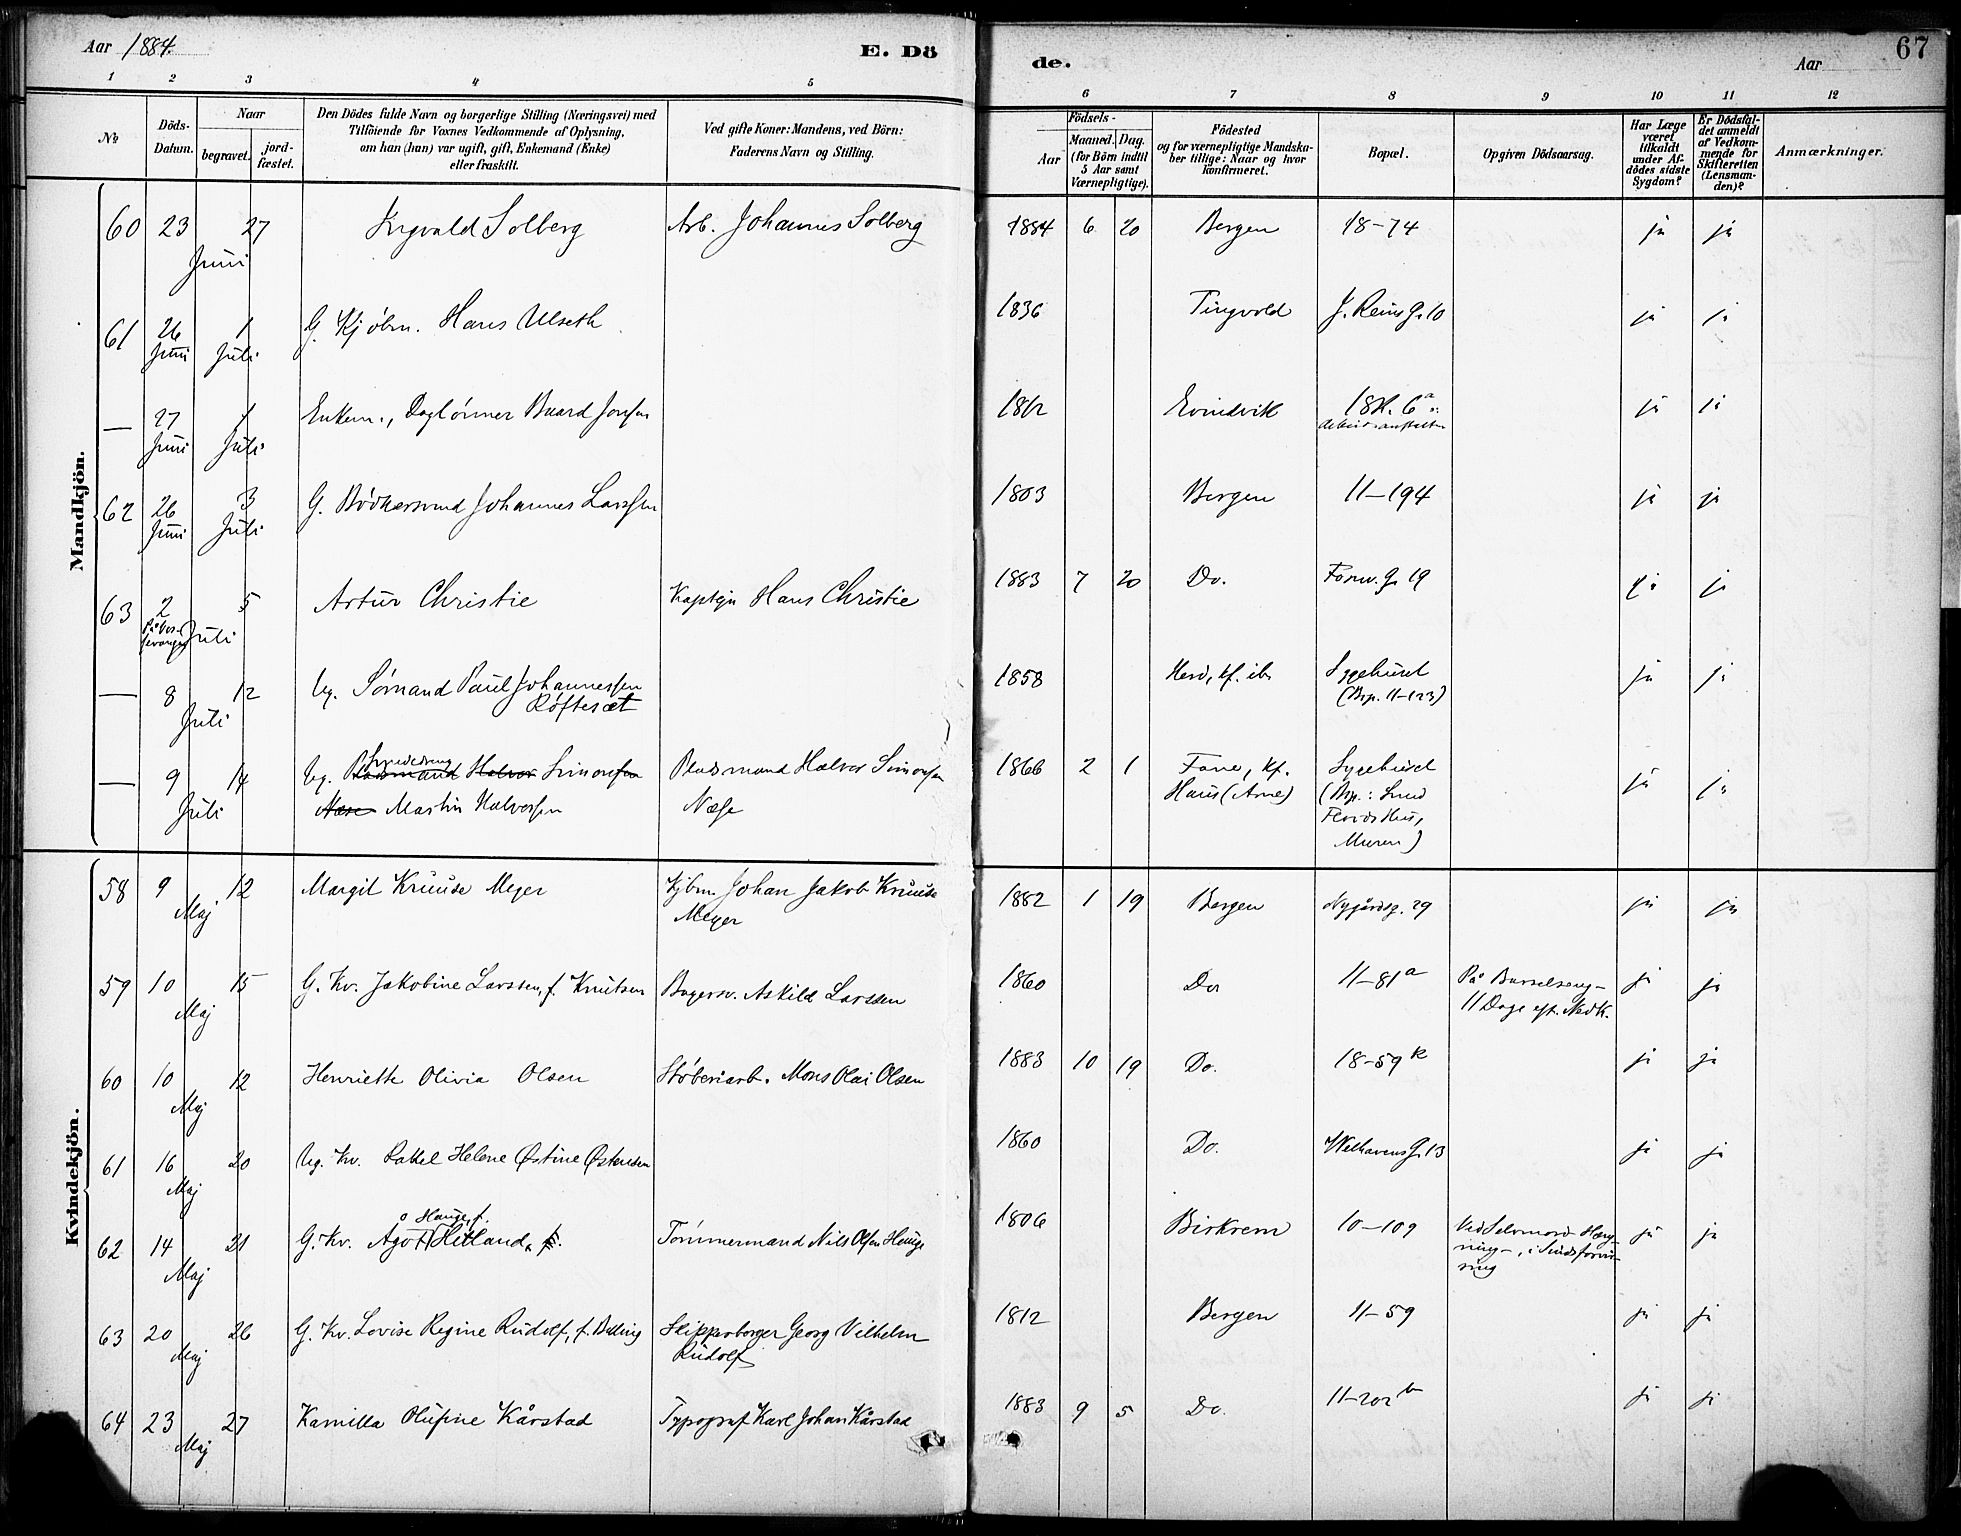 Aar 1884.
E. Dö
de.
Aar
67
1 2 3 4 5 6 7 8 9 10 11 12
№
Döds-
Datum.
Naar
begravet.
jord-
fæstet.
Den Dödes fulde Navn og borgerlige Stilling (Næringsvei) med
Tilföiende for Voxnes Vedkommende af Oplysning,
om han (hun) var ugift, gift, Enkemand (Enke)
eller fraskilt.
Ved gifte Koner: Mandens, ved Börn:
Faderens Navn og Stilling.
Födsels-
Aar
Maaned.
Dag.
(for Börn indtil
5 Aar samt
Værnepligtige).
Födested
og for værnepligtige Mandska-
ber tillige: Naar og hvor
konfirmeret.
Bopæl.
Opgiven Dödsaarsag.
Har Læge
været
tilkaldt
under Af-
dödes sidste
Sygdom?
Er Dödsfal-
det anmeldt
af Vedkom-
mende for
Skifteretten
(Lensman-
den)?
Anmærkninger.
Mandkjön.
60 23 27 Ingvald Solberg Arb. Johannes Solberg 1884 6 20 Bergen 18-74 ja ja
Juni
61 26 1 G. Kjøbm. Hans Ulseth 1836 Tingvold J. Reins G. 10 ja ja
Juni Juli
— 27 1 Enkem., Daglønner Baard Jonsen 1812 Evindvik 18R. 6a
Juni Juli Arbeidsanstalten ja ja
62 26 3 G. Bødkersvend Johannes Larssen 1803 Bergen 11-194 ja ja
Juni Juli
63 2 5 Artur Christie Kaptejn Hans Christie 1883 7 20 Do. Forw. G. 19 ja ja
Juli
— 8 12 Ug. Sømand Paul Johannessen 1858 Herø, kf. ib. Sygehuset ja ja
Juli Røfteset (Bop. 11-123)
— 9 14 Ug. Smededreng Pladsmand Halvor Simonsen Pladsmand Halvor Simonsen 1866 2 1 Fane, kf. Sygehuset ja ja
Juli Næse Martin Halvorsen Næse Haus (Arne) (Bop.: Smed
Flovds Hus,
Muren)
Kvindekjön.
58 9 12 Margit Kruuse Meyer Kjbm. Johan Jakob Kruuse 1882 1 19 Bergen Nygårdsg. 29 ja ja
Maj Meyer
59 10 15 G. Kv. Jakobine Larssen, f. Knutsen Bagersv. Askild Larssen 1860 Do 11-81a På Barselseng- ja ja
Maj 11 Dage eft. Nedk.
60 10 12 Henriette Olivia Olsen Støberiarb. Mons Olai Olsen 1883 10 19 Do. 18-59k ja ja
Maj
61 16 20 Ug. Kv. Rakel Helene Østine Østensen 1860 Do. Welhavens G. 13 ja ja
Maj
62 14 21 G. Kv. Agot Hauge, f. Hetland, f. Tømmermand Nils Olsen Hauge 1806 Birkrem 10-109 Ved Selvmord-Hæng- ja ja
Maj ning-, i Sindsforvir-
ring
63 20 26 G. Kv. Lovise Regine Rudolf, f. Balling Skipperborger Georg Vilhelm 1812 Bergen 11-59 ja ja
Maj Rudolf
64 23 27 Kamilla Olufine Kårstad Typograf Karl Johan Kårstad 1883 9 5 Do. 11-202b ja ja
Maj